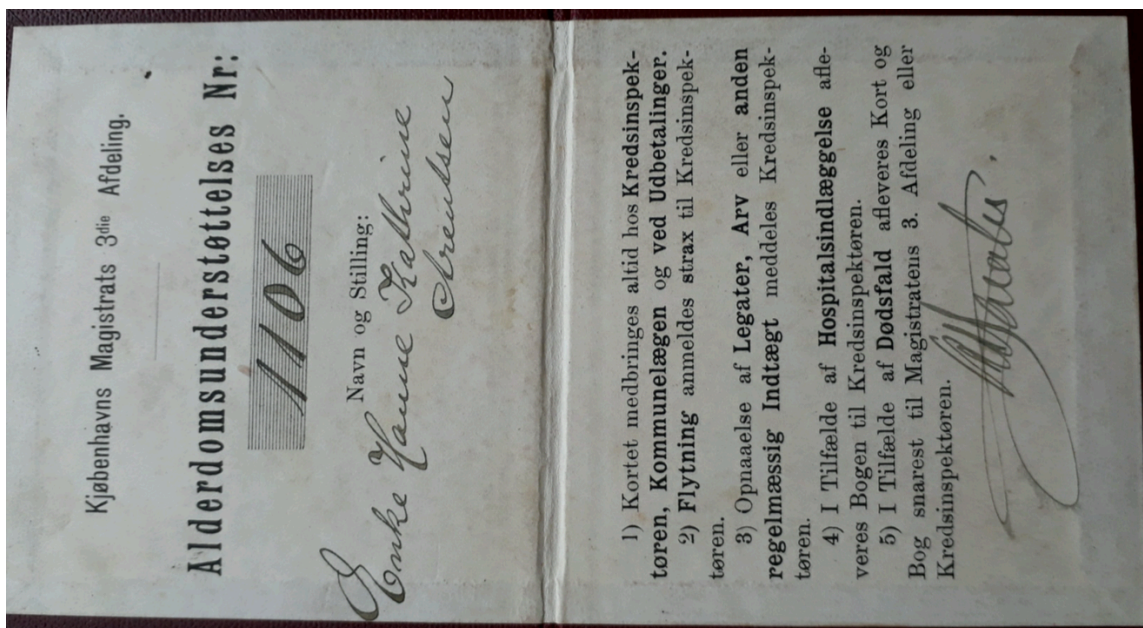 Kjøbenhavns Magistrats 3die Afdeling.
Alderdomsunderstøttelses Nr:
1106
Navn og Stilling:
Enke Hanne Kathrine
Arentsen
1) Kortet medbringes altid hos Kredsinspek-
tøren, Kommunelægen og ved Udbetalinger.
2) Flytning anmeldes strax til Kredsinspek-
tøren.
3) Opnaaelse af Legater, Arv eller anden
regelmæssig Indtægt meddeles Kredsinspek-
tøren.
4) I Tilfælde af Hospitalsindlæggelse afle-
veres Bogen til Kredsinspektøren.
5) I Tilfælde af Dødsfald afleveres Kort og
Bog snarest til Magistratens 3. Afdeling eller
Kredsinspektøren.